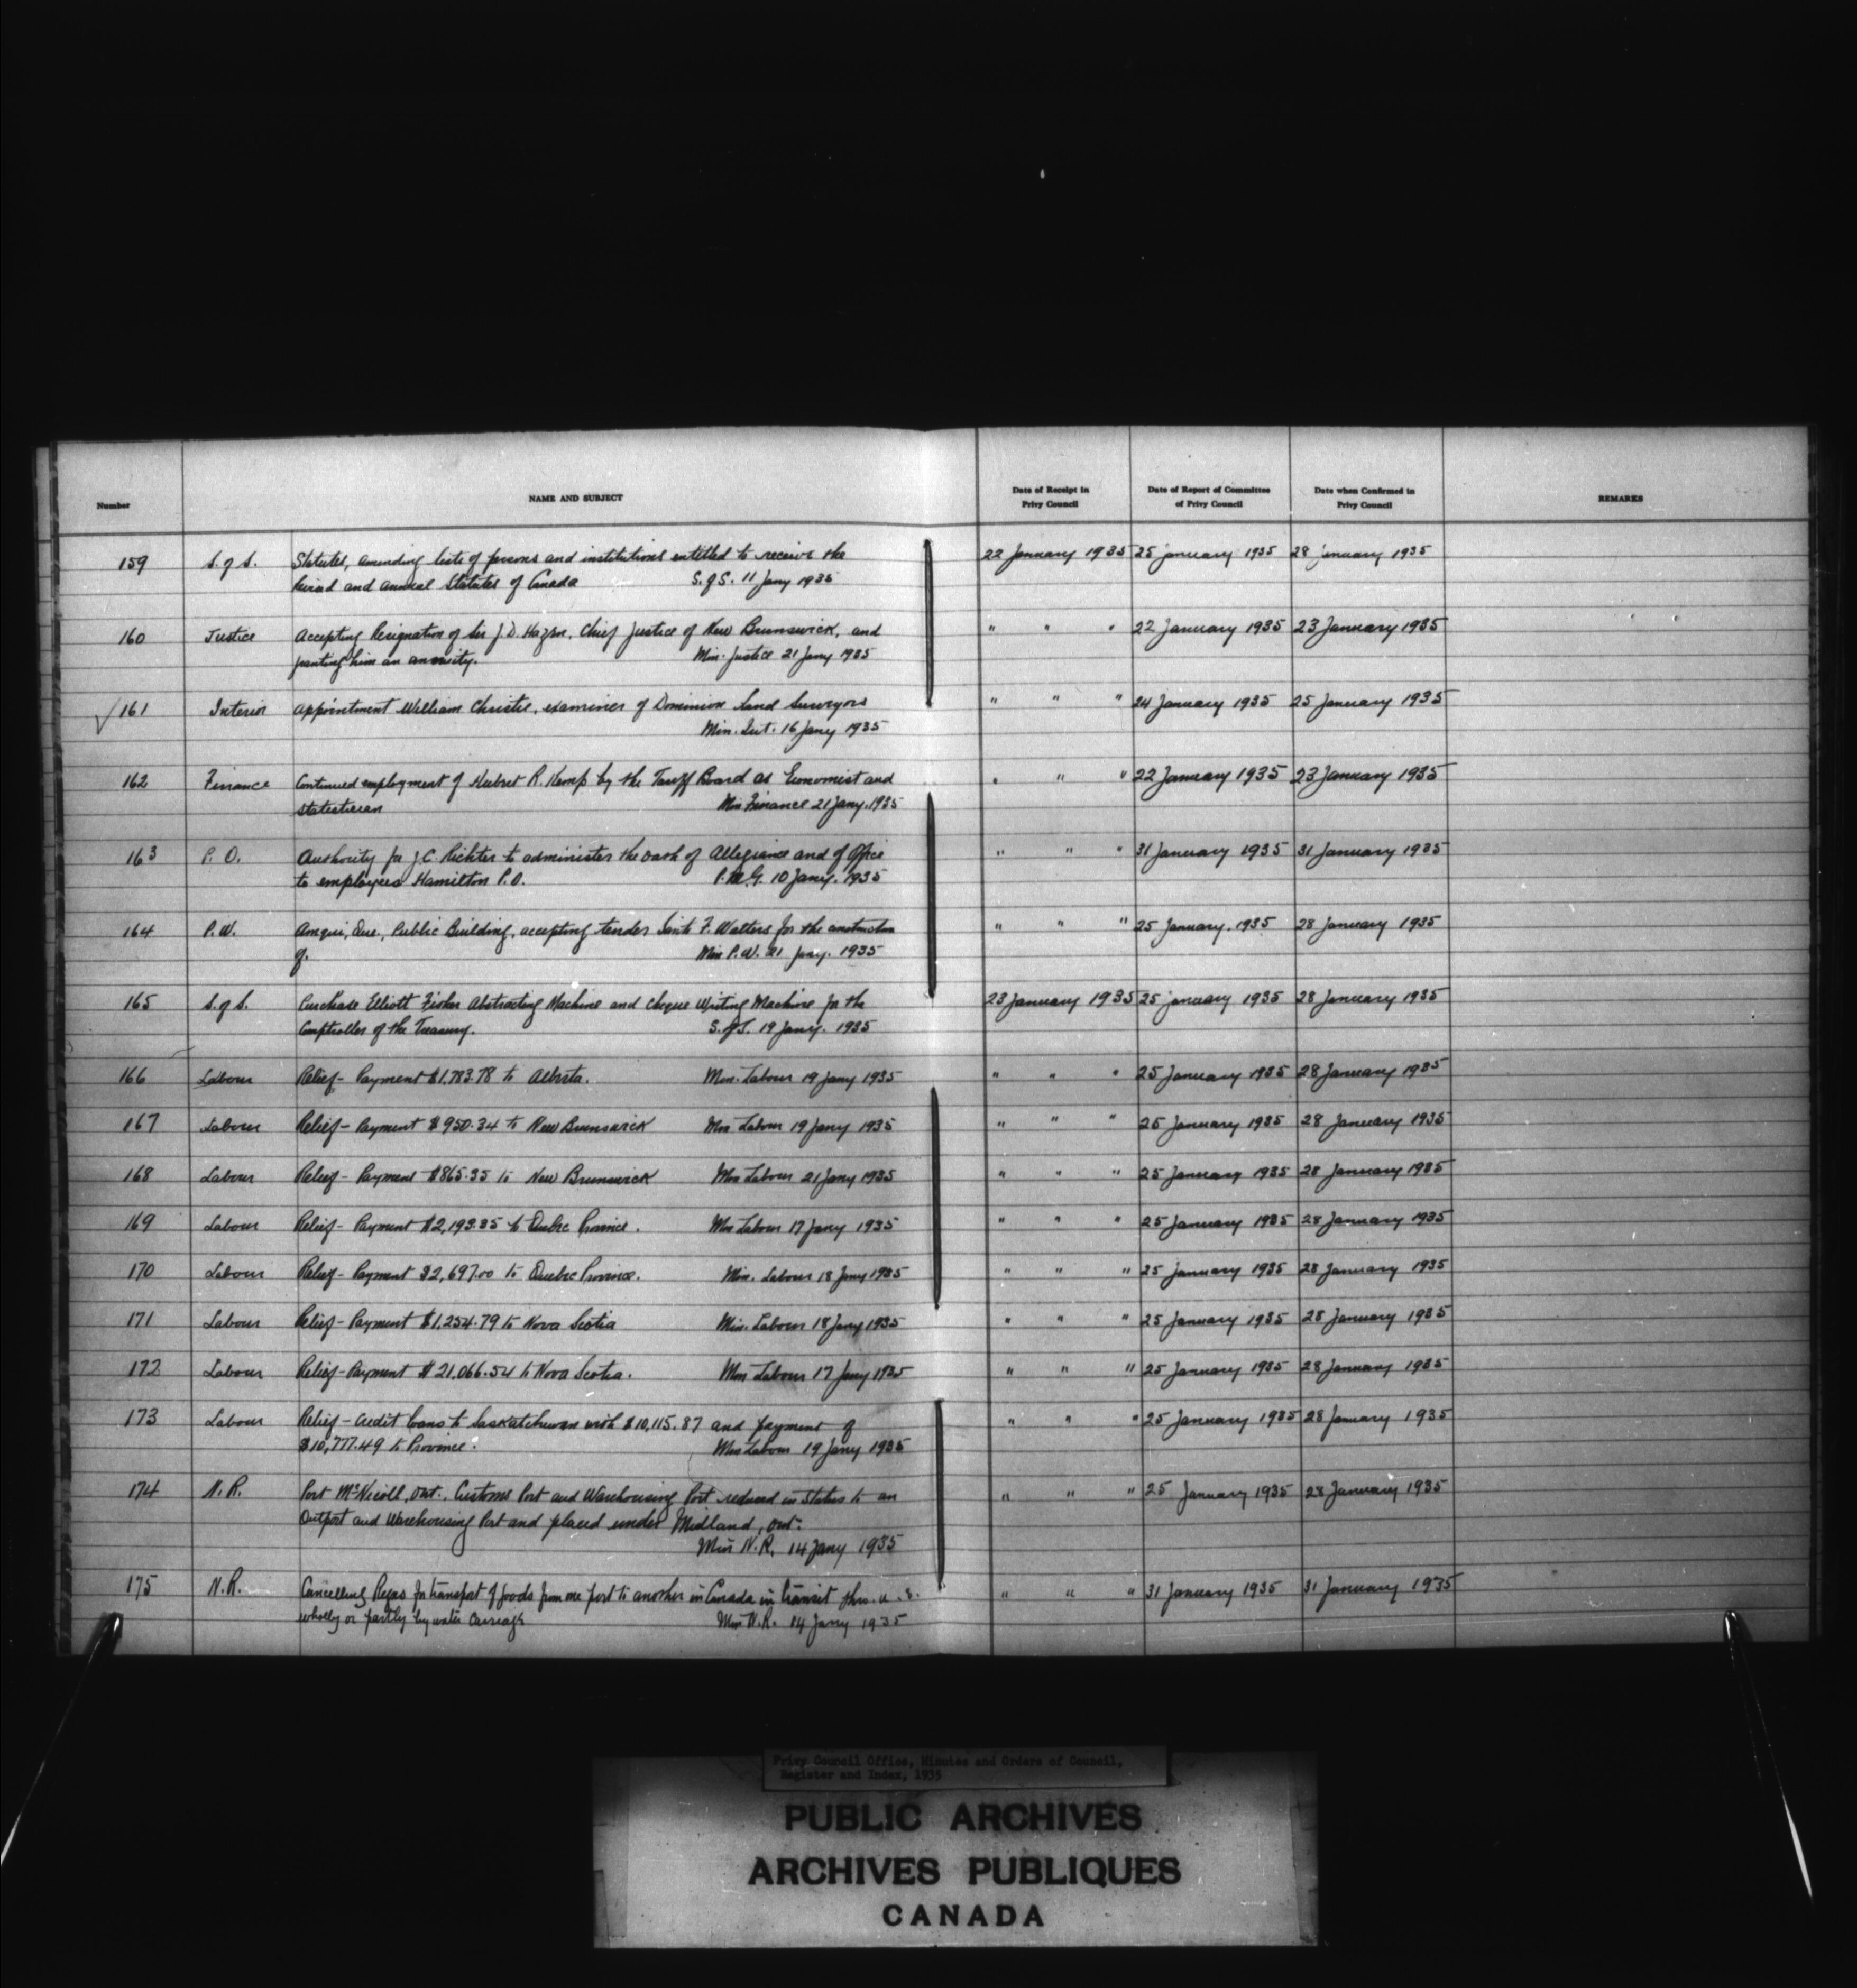 Number NAME AND SUBJECT Date of Receipt in Privy Council Date of Report of Committee of Privy Council Date when Confirmed in Privy Council REMARKS
159 S. of S. Statutes, amending lists of persons and institutions entitled to receive the 22 January 1935 25 January 1935 28 January 1935
and annual Statutes of Canada S. of S. 11 Jany 1935
160 Justice Accepting Resignation of Sir J. D. Hazen, Chief Justice of New Brunswick, and " " " 22 January 1935 23 January 1935
granting him an annuity. Min. Justice 21 Jany 1935
✓161 Interior Appointment William Christie, examiner of Dominion Land Surveyors " " " 24 January 1935 25 January 1935
Min. Int. 16 Jany 1935
162 Finance Continued employment of Hubert R. Kemp by the Tariff Board as Economist and " " " 22 January 1935 23 January 1935
Statistician Min Finance 21 Jany. 1935
163 P. O. Authority for J. C. Richter to administer the oath of Allegiance and of Office " " " 31 January 1935 31 January 1935
to employees Hamilton P.O. P.M.G. 10 Jany. 1935
164 P.W. Amqui, Que., Public Building, accepting tender F. Walters for the construction " " " 25 January. 1935 28 January 1935
of. Min P.W. 21 Jany. 1935
165 S. of S. Purchase Elliott Fisher Abstracting Machine and Cheque Writing Machine for the 23 January 1935 25 January 1935 28 January 1935
Comptroller of the Treasury. 19 Jany. 1935
166 Labour Relief - Payment $1,783.78 to Alberta. Min. Labour 19 Jany 1935 " " " 25 January 1935 28 January 1935
167 Labour Relief - Payment $950.34 to New Brunswick Min Labour 19 Jany 1935 " " " 25 January 1935 28 January 1935
168 Labour Relief - Payment $865.35 to New Brunswick Min Labour 21 Jany 1935 " " " 25 January 1935 28 January 1935
169 Labour Relief - Payment $2,193.35 to Quebec Province. Min Labour 17 Jany 1935 " " " 25 January 1935 28 January 1935
170 Labour Relief - Payment $2,697.00 to Quebec Province. Min. Labour 18 Jany 1935 " " " 25 January 1935 28 January 1935
171 Labour Relief - Payment $1,254.79 to Nova Scotia Min. Labour 18 Jany 1935 " " " 25 January 1935 28 January 1935
172 Labour Relief - Payment $21,066.54 to Nova Scotia. Min Labour 17 Jany 1935 " " " 25 January 1935 28 January 1935
173 Labour Relief - Credit loans to Saskatchewan with $10,115.87 and payment of " " " 25 January 1935 28 January 1935
$10,777.49 to Province. Min Labour 19 Jany 1935
174 N. R. Port McNicoll, Ont., Customs Port and Warehousing Port reduced in status to an " " " 25 January 1935 28 January 1935
Outport and Warehousing Port and placed under Midland, Ont.
Min N. R. 14 Jany 1935
175 N. R. Cancelling Regns for transport of goods from one port to another in Canada in transit thro. U.S. " " " 31 January 1935 31 January 1935
wholly or partly by water carriage Min N. R. 14 Jany 1935
Privy Council Office, Minutes and Orders of Council,
Register and Index, 1935
PUBLIC ARCHIVES
ARCHIVES PUBLIQUES
CANADA